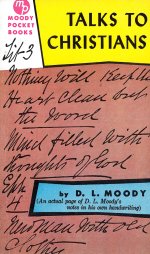 MP
MOODY
POCKET
BOOKS
TALKS TO
CHRISTIANS
Tit-3
Nothing will Keep the
Heart Clean but
the Word
Mind filled with
thoughts of God
Eph
4
by D. L. MOODY
(An actual page of D. L. Moody's
notes in his own handwriting)
New Man with old
Clothes